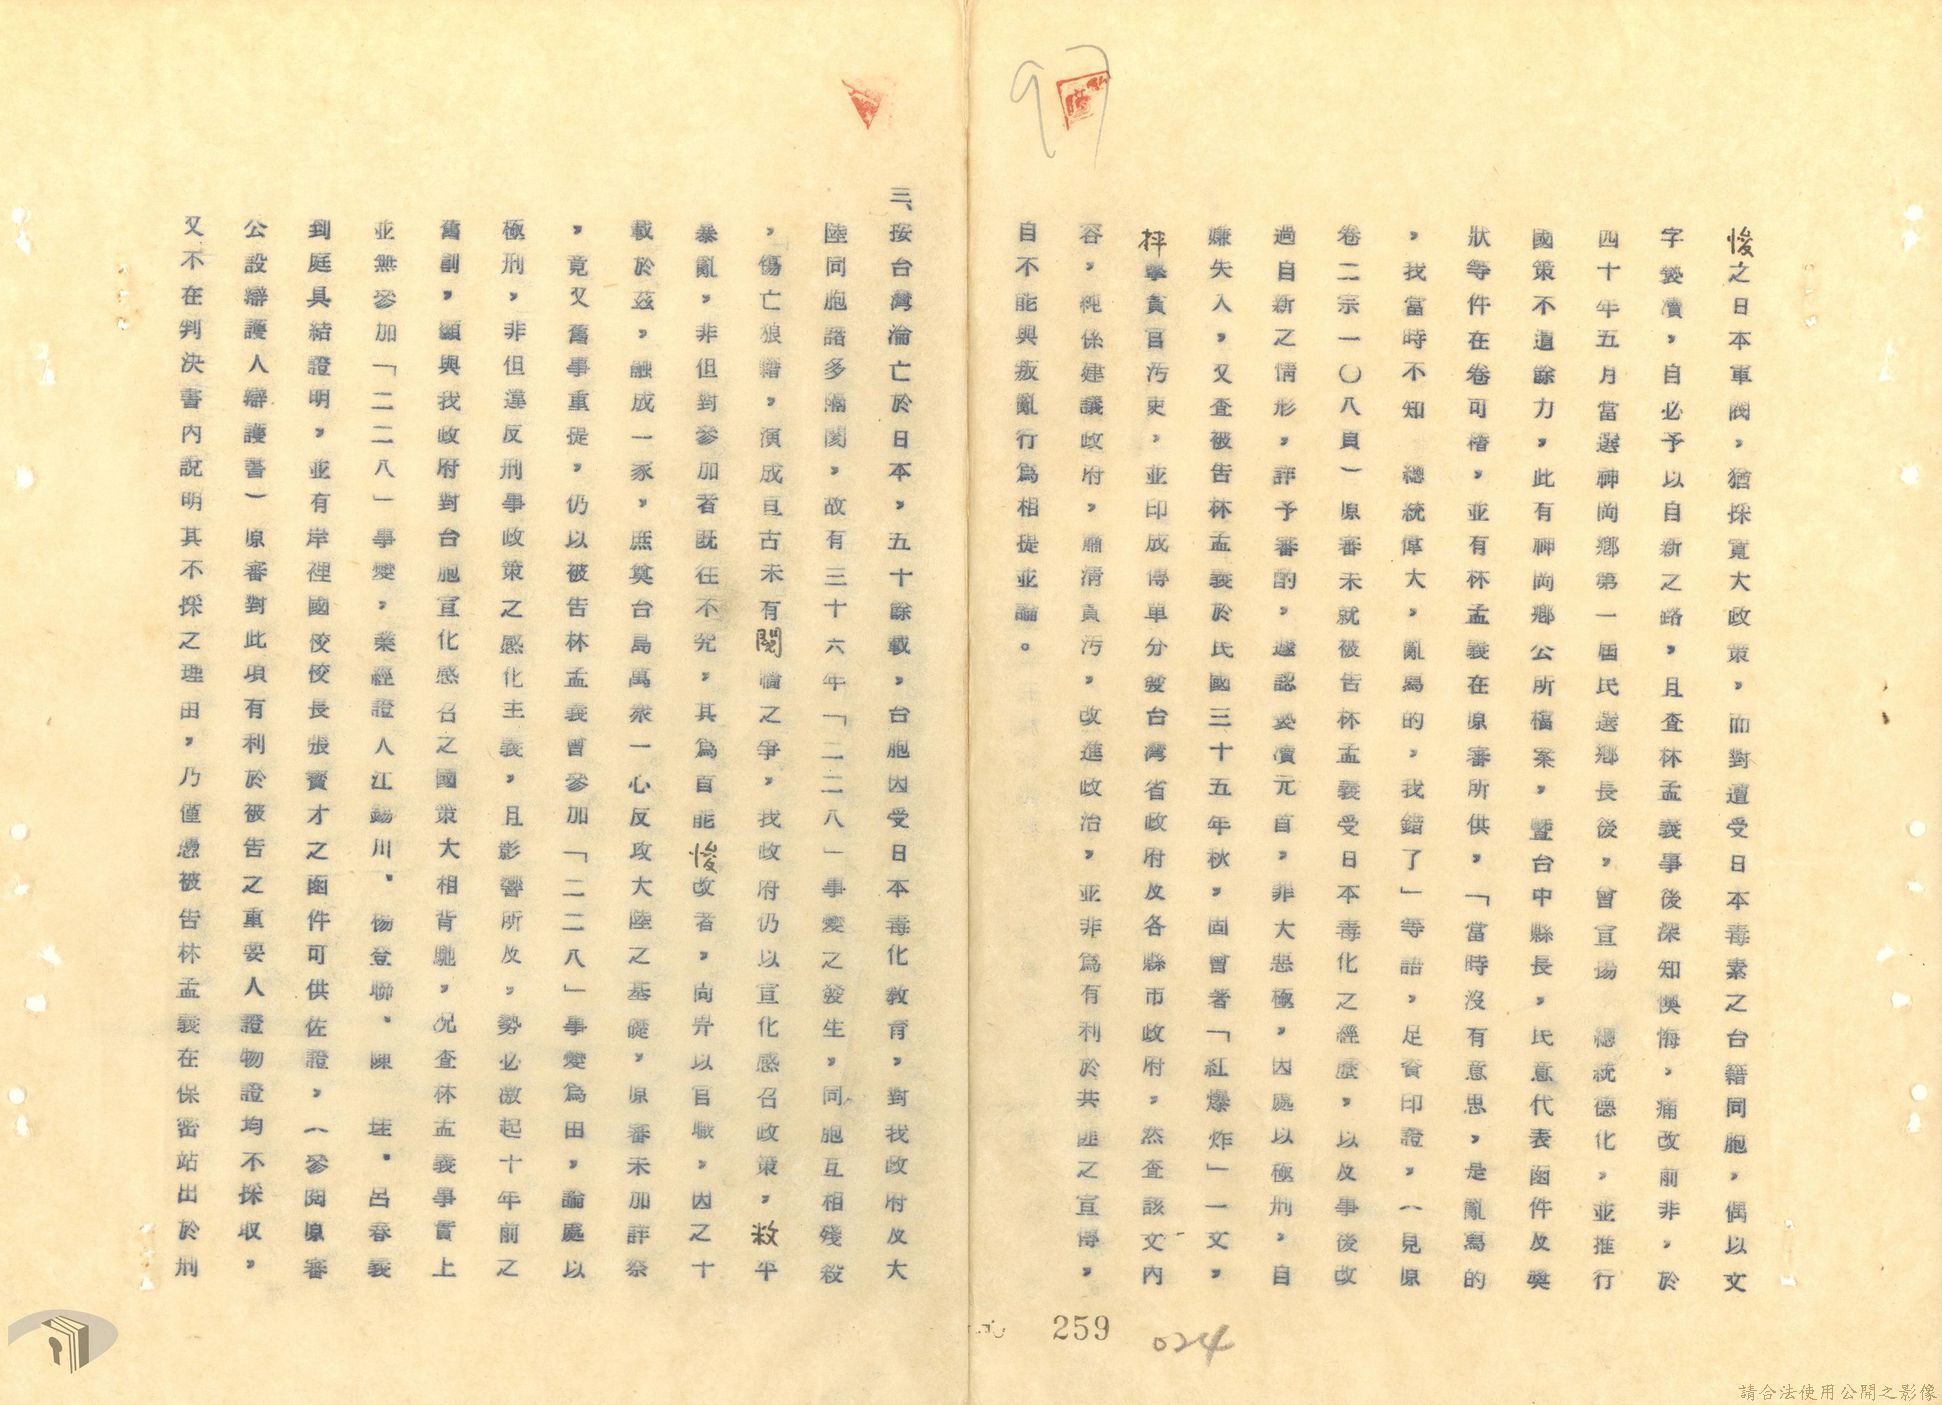 悛之日本軍閥，猶採寬大政策，而對遭受日本毒素之台籍同胞，偶以文
字褻瀆，自必予以自新之路，且查林孟義事後深知懊悔，痛改前非，於
四十年五月當選神岡鄉第一屆民選鄉長後，曾宣揚　總統德化，並推行
國策不遺餘力，此有神岡鄉公所檔案，暨台中縣長，民意代表函件及獎
狀等件在卷可稽，並有林孟義在原審所供，「當時沒有意思，是亂寫的
，我當時不知　總統偉大，亂寫的，我錯了」等語，足資印證，（見原
卷二宗一〇八頁）原審未就被告林孟義受日本毒化之經歷，以及事後改
過自新之情形，詳予審酌，遽認褻瀆元首，罪大惡極，因處以極刑，自
嫌失入，又查被告林孟義於民國三十五年秋，固曾著「紅爆炸」一文，
抨擊貪官污吏，並印成傳單分發台灣省政府及各縣市政府，然查該文內
容，純係建議政府，肅清貪污，改進政治，並非為有利於共匪之宣傳，
自不能與叛亂行為相提並論。
三、按台灣淪亡於日本，五十餘載，台胞因受日本毒化教育，對我政府及大
陸同胞諮多隔閡，故有三十六年「二二八」事變之發生，同胞互相殘殺
，傷亡狼籍，演成亘古未有鬩牆之爭，我政府仍以宣化感召政策，救平
暴亂，非但對參加者既往不究，其為首能悛改者，尚畀以官職，因之十
載於茲，融成一家，庶冀台島萬衆一心反攻大陸之基礎，原審未加詳察
，竟又舊事重提，仍以被告林孟義曾參加「二二八」事變為由，論處以
極刑，非但違反刑事政策之感化主義，且影響所及，勢必激起十年前之
舊創，顯與我政府對台胞宣化感召之國策大相背馳，況查林孟義事實上
並無參加「二二八」事變，業經證人江錫川，楊登聯、陳　　，呂春義
到庭具結證明，並有岸裡國校校長張寶才之函件可供佐證，（參閱原審
公設辯護人辯護書）原審對此項有利於被告之重要人證物證均不採取，
又不在判決書內說明其不採之理由，乃僅憑被告林孟義在保密站出於刑
97
259
024
請合法使用公開之影像